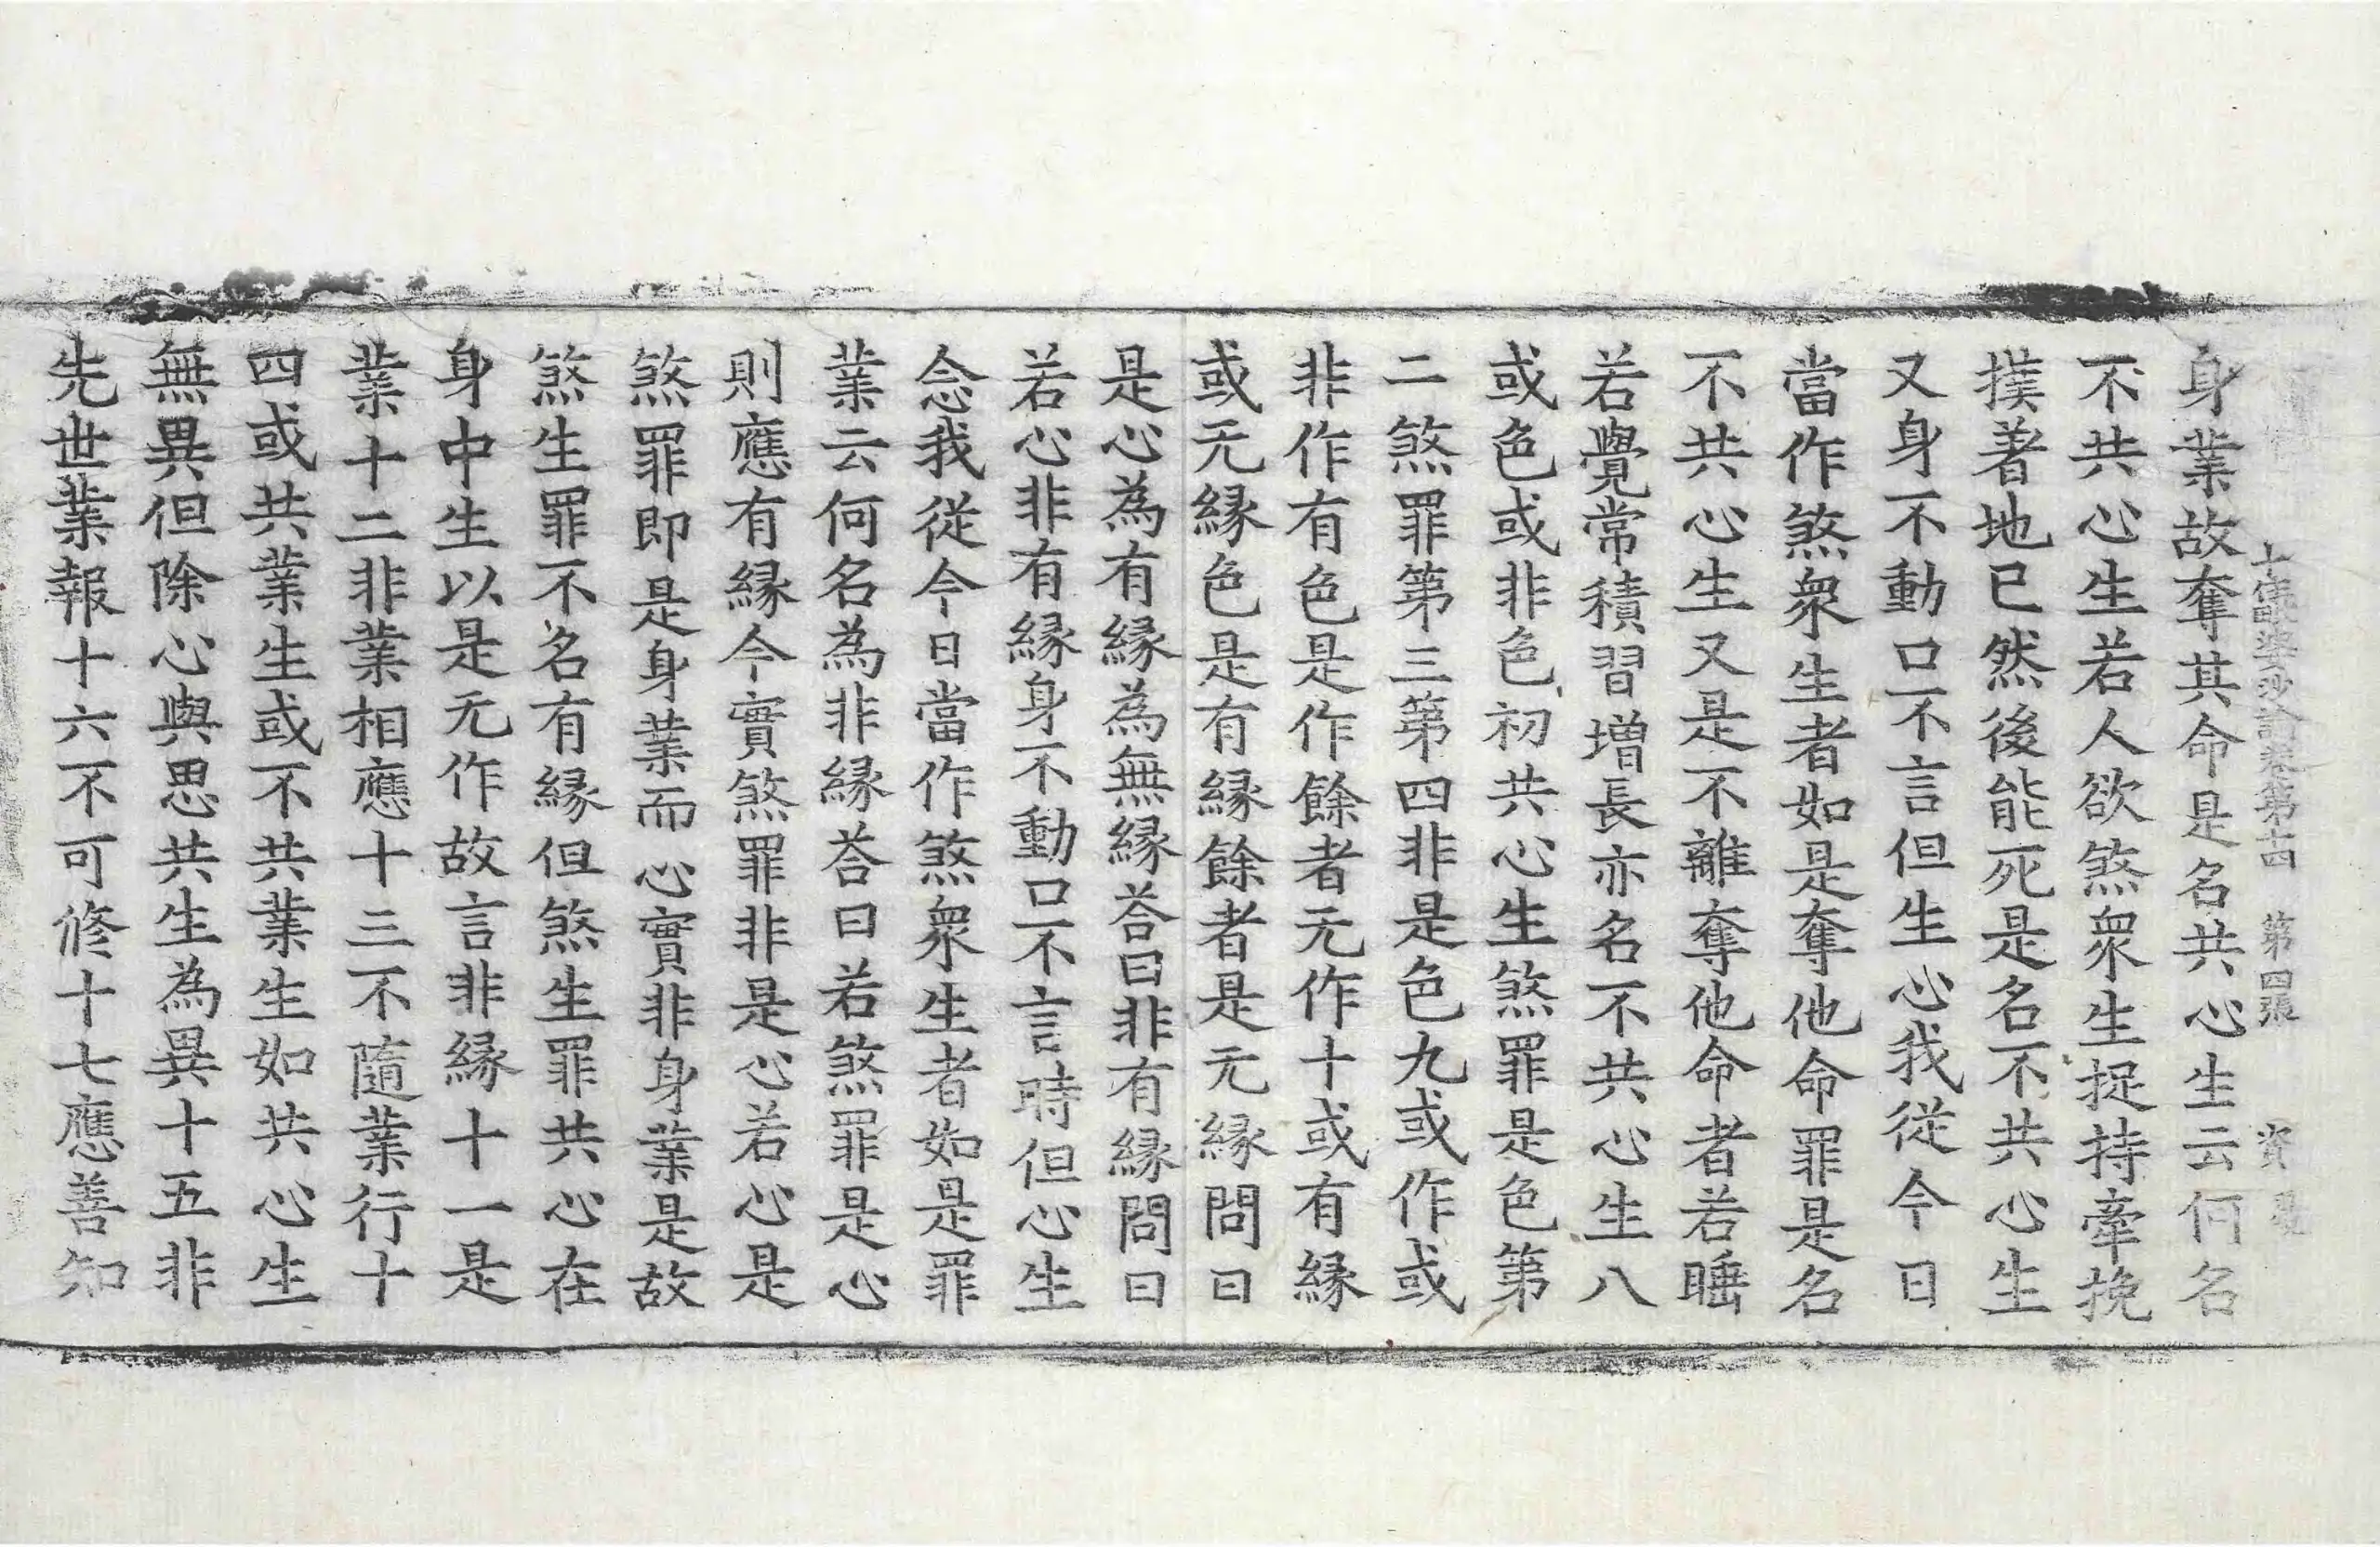 十住毗婆沙論卷第十四 第四張 資
身業故奪其命是名共心生云何名
不共心生若人欲煞衆生捉持牽挽
撲著地已然後能死是名不共心生
又身不動口不言但生心我從今日
當作煞衆生者如是奪他命罪是名
不共心生又是不離奪他命者若睡
若覺常積習增長亦名不共心生八
或色或非色初共心生煞罪是色第
二煞罪第三第四非是色九或作或
非作有色是作餘者无作十或有縁
或无縁色是有縁餘者是无縁問曰
是心為有縁為無縁荅曰非有縁問曰
若心非有縁身不動口不言時但心生
念我從今日當作煞衆生者如是罪
業云何名為非縁荅曰若煞罪是心
則應有縁今實煞罪非是心若心是
煞罪即是身業而心實非身業是故
煞生罪不名有縁但煞生罪共心在
身中生以是无作故言非縁十一是
業十二非業相應十三不隨業行十
四或共業生或不共業生如共心生
無異但除心與思共生為異十五非
先世業報十六不可修十七應善知